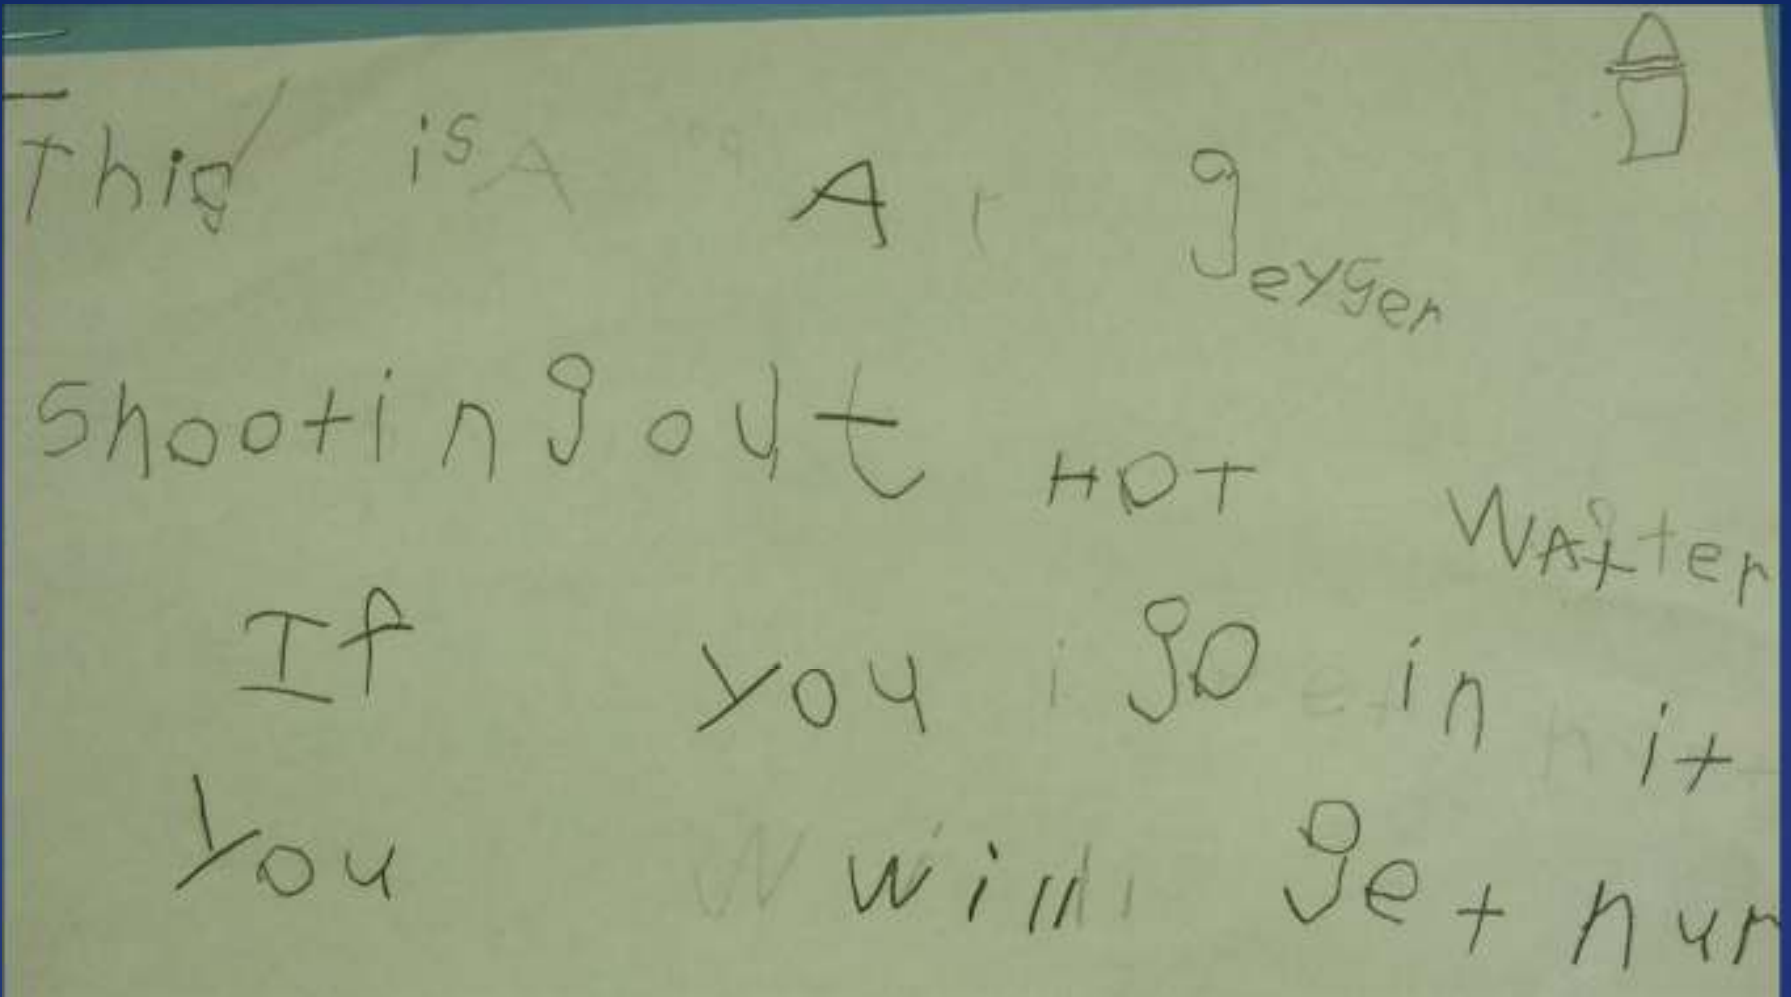 This is A geyger
Shooting out HOT WAtter
If you go in it
You will get hur